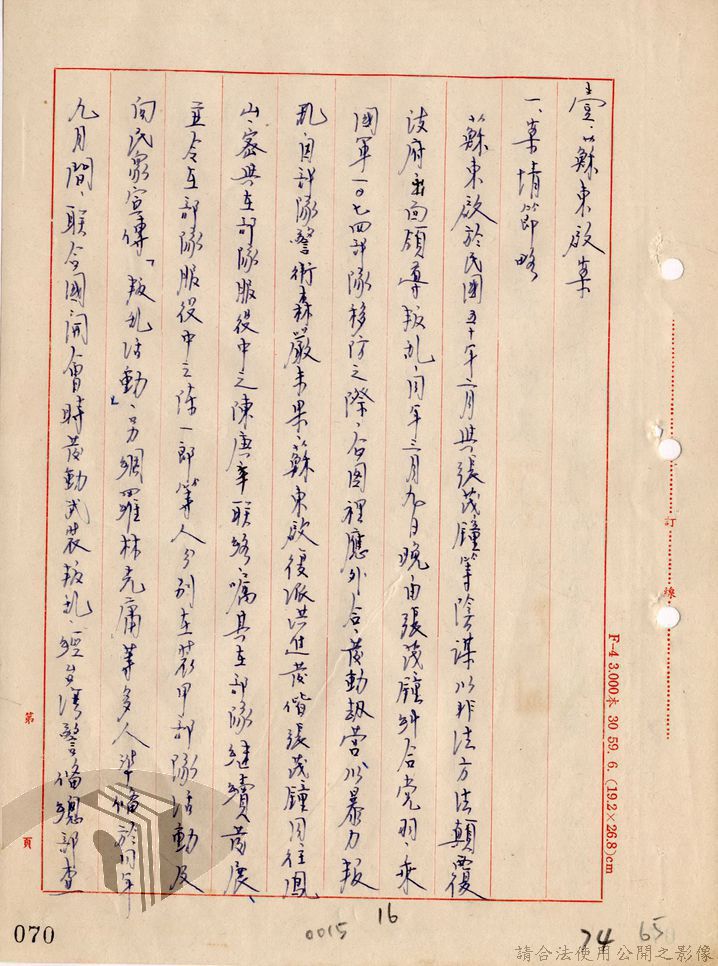 壹、蘇東啟案
一、案情節略
蘇東啟於民國五十年二月與張茂鐘等陰謀以非法方法顛覆
政府並四面領導叛乱、同年三月九日晚由張茂鐘糾合党羽、乘
國軍一〇七四部隊移防之際、合圖裡應外合、發動刼營以暴力叛
乱、因部隊警衛森嚴未果、蘇東啟復派洪進發偕張茂鐘同往鳳
山、密與在部隊服役中之陳庚辛联络、嘱其在部隊继續發展、
並令在部隊服役中之陈一郎等人分别在装甲部隊活動及
向民眾宣傳「叛乱活動」、另網羅林克庸等多人準備於同年
九月間、联合國開會時發動武装叛乱、經台湾警俻總部查
訂
線
F-4 3.000本 30 59. 6. (19.2×26.8)cm
第
頁
070
0015
16
74
65
請合法使用公開之影像